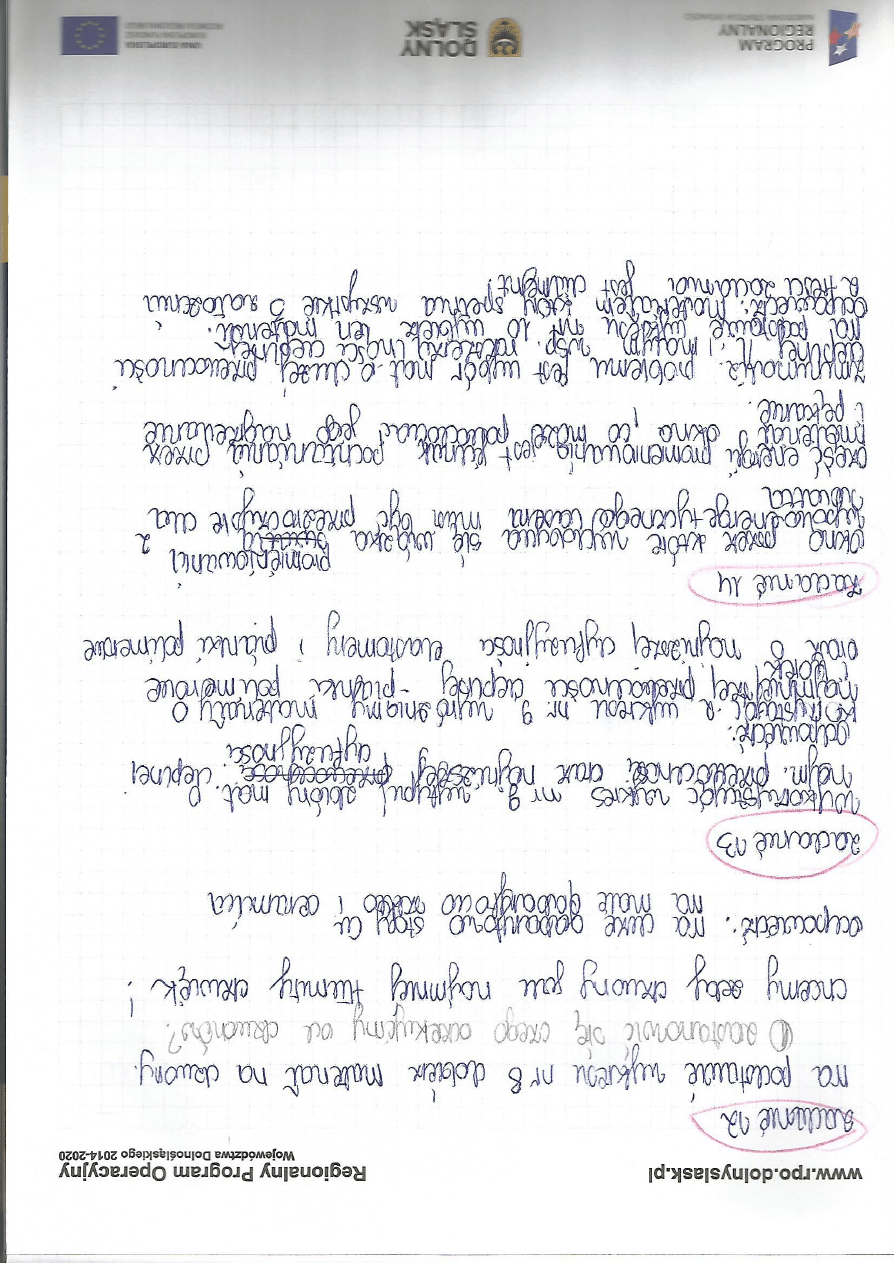 www.rpo.dolnyslask.pl
Regionalny Program Operacyjny
Województwa Dolnośląskiego 2014-2020
zadanie 12
na podstawie wykresu nr 8 dobierz materiał na dzwony.
zastanowić się czego oczekujemy od dzwonów?
chcemy żeby dzwony jak najmniej tłumiły dźwięk !
odpowiedź: na duże gabarytowo stopy Cu
na małe gabarytowo szkło i ceramika
zadanie 13
Wykorzystując wykres nr 9, wytypuj zbiory mat. o
najm. przewodność oraz najniższej dyfuzyjności cieplnej.
odpowiedź:
Korzystając z wykresu nr 9 wyróżniamy materiały o
najmniejszej przewodności cieplnej - pianki polimerowe
i korek
oraz o najniższej dyfuzyjności elastomery i pianki polimerowe
zadanie 14
okno przez które wydobywa się wiązka promieniowania z
wysokoenergetycznego lasera musi być przezroczyste dla
światła
część energii promieniowania jest jednak pochłaniana przez
materiał okna co może powodować jego nagrzewanie
i pękanie.
problemu jest wybór mat. o dużej przewodności
cieplnej λ i małym wsp. rozszerzalności cieplnej.
na podstawie wykresu nr 10 wybierz ten materiał.
odpowiedź: materiałem który spełnia wszystkie założenia
z treści zadania jest diament!
PROGRAM
REGIONALNY
NARODOWA STRATEGIA SPÓJNOŚCI
DOLNY
ŚLĄSK
UNIA EUROPEJSKA
EUROPEJSKI FUNDUSZ
ROZWOJU REGIONALNEGO